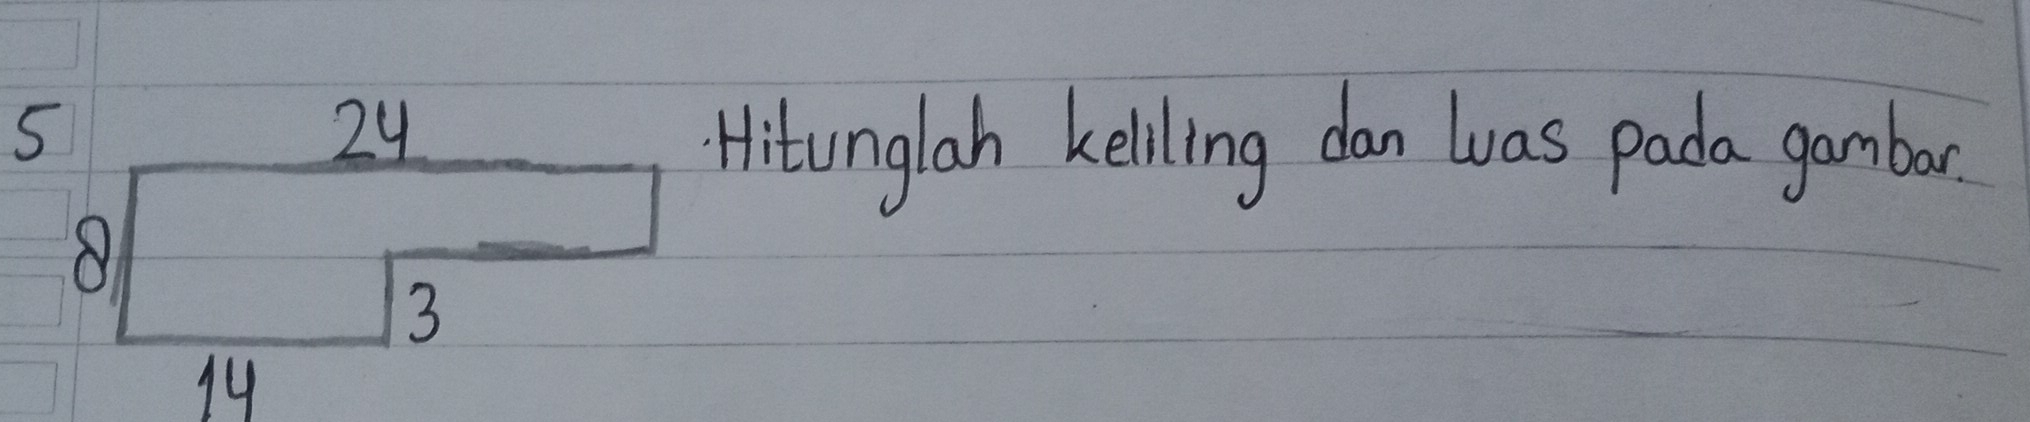 5
24
Hitunglah keliling dan luas pada gambar.
8
3
14